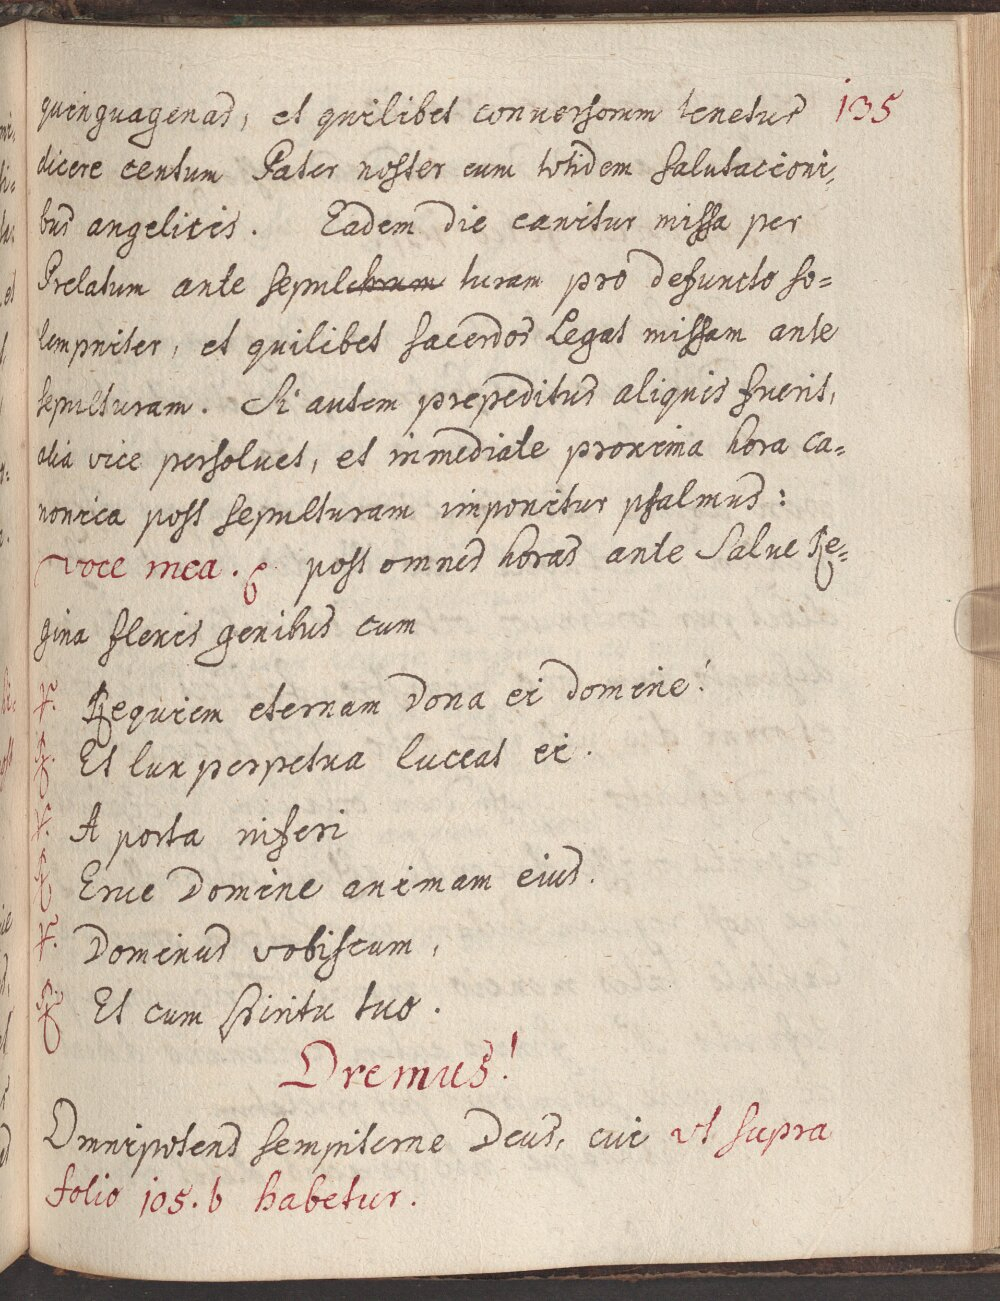 quinquagenas, et quilibet conuersorum tenetur 135
dicere centum Pater noster cum totidem salutacioni,
bus angelicis. Eadem die canitur missa per
Prelatum ante sepulchrum turam pro defuncto so=
lempniter, et quilibet sacerdos Legat missam ante
sepulturam. Si autem prepeditus aliquis fuerit,
alia vice persoluet, et inmediate proxima hora ca=
nonica post sepulturam imponitur psalmus:
Voce mea. post omnes horas ante Salue Re=
gina flexis genibus cum
℣. Requiem eternam dona ei domine!
℟. Et lux perpetua luceat ei.
℣. A porta inferi
℟. Erue Domine animam eius.
℣. Dominus vobiscum,
℟. Et cum Spiritu tuo.
Oremus!
Omnipotens sempiterne Deus, cui vt supra
folio 105. b habetur.